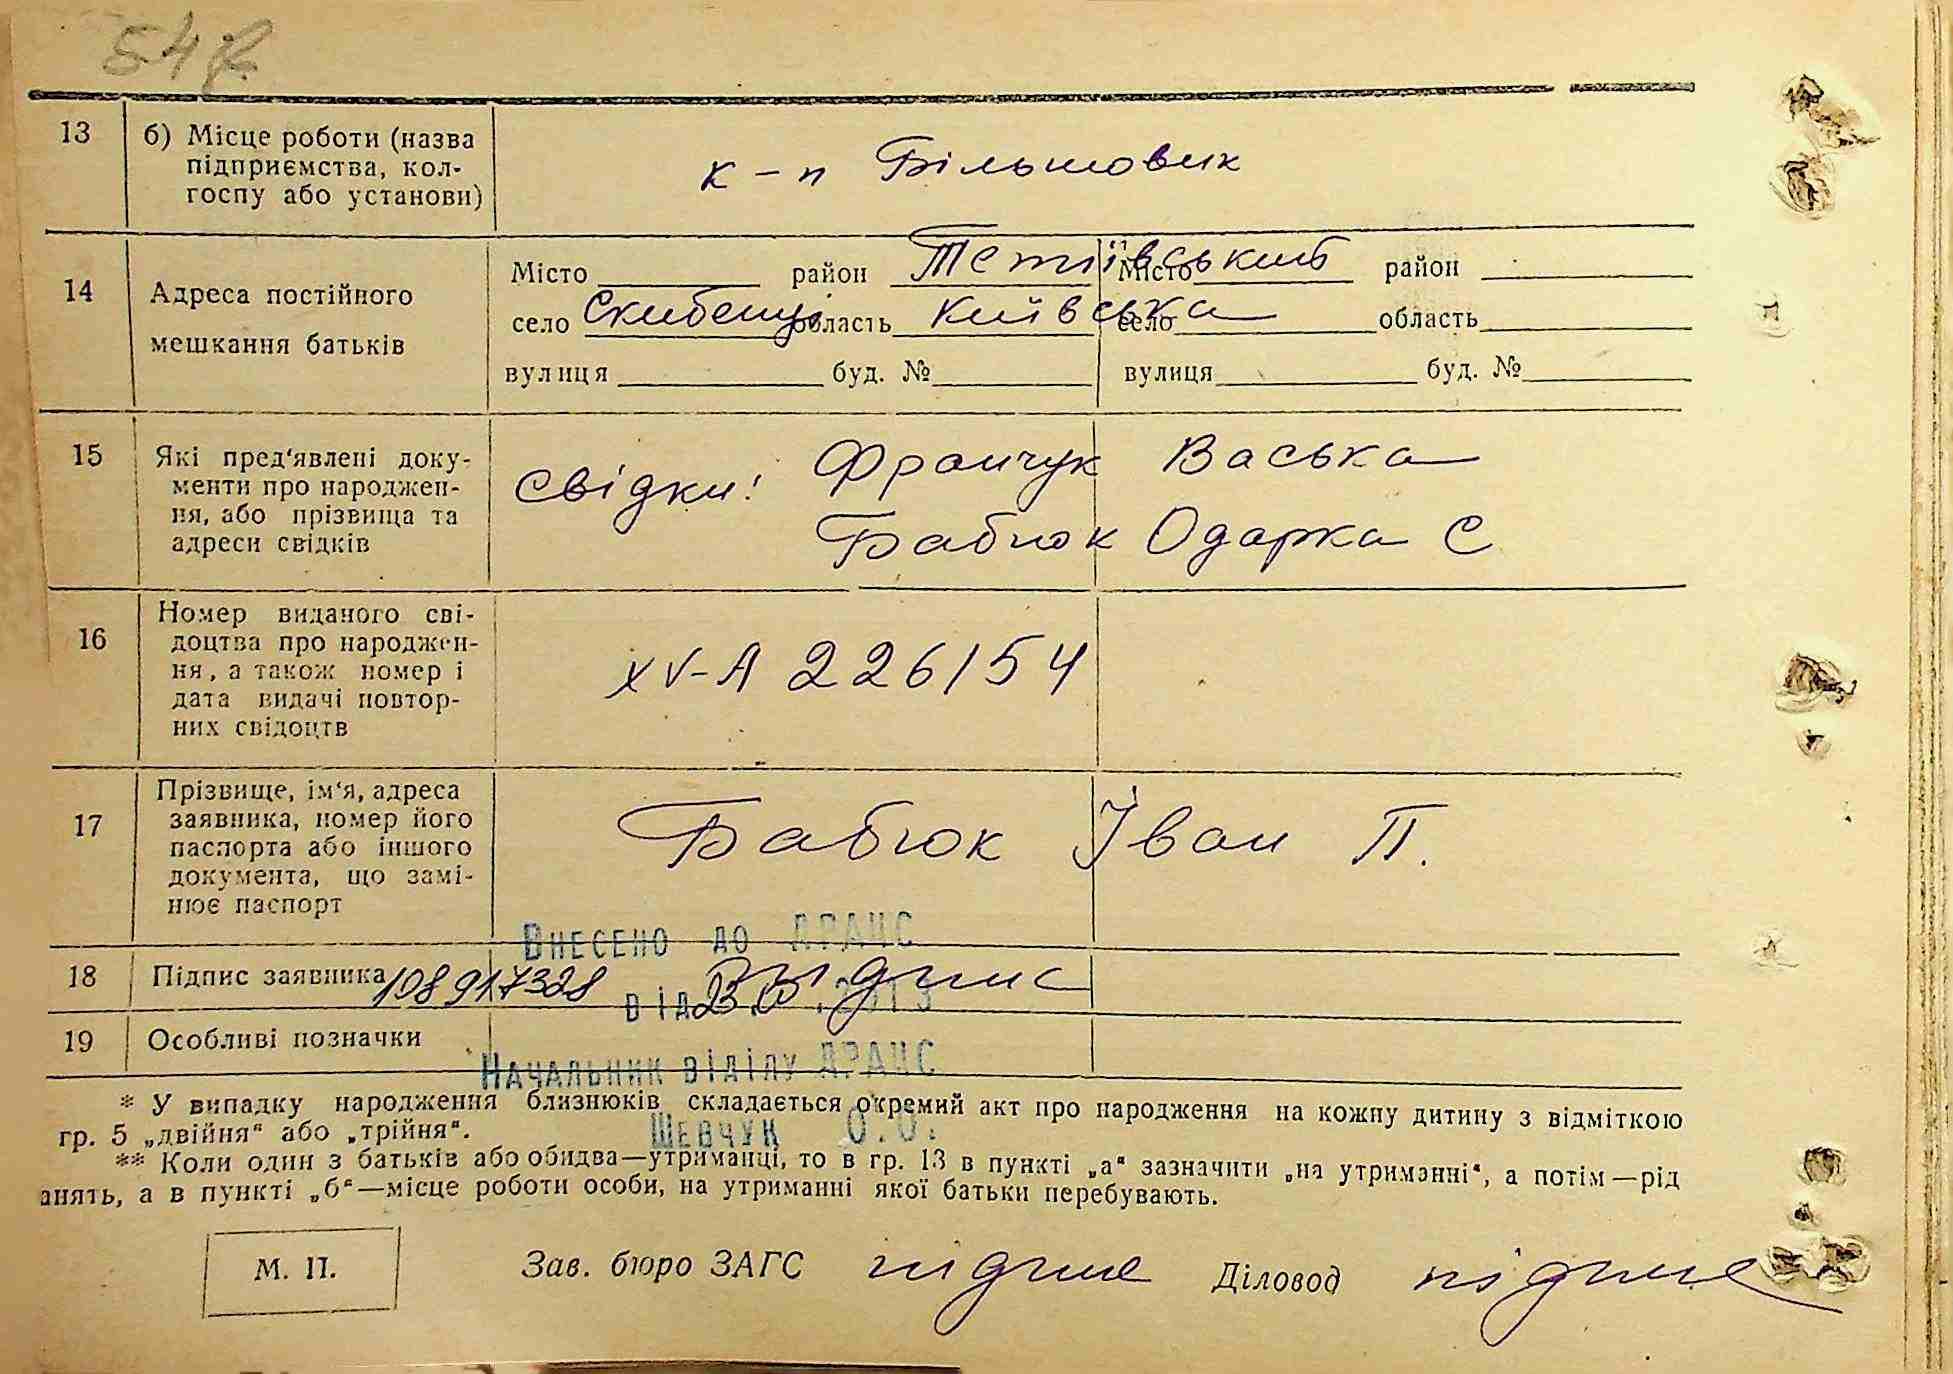 13 б) Місце роботи (назва
підприємства, кол-
госпу або установи)
к-п Більшовик
14 Адреса постійного
мешкання батьків
Місто район Тетіївський Місто район
село Скибенці область Київська село область
вулиця буд. № вулиця буд. №
15 Які пред‘явлені доку-
менти про народжен-
ня, або прізвища та
адреси свідків
свідки: Франчук Васька
Бабюк Одарка С
16 Номер виданого сві-
доцтва про народжен-
ня, а також номер і
дата видачі повтор-
них свідоцтв
XV-А 226154
17 Прізвище, ім‘я, адреса
заявника, номер його
паспорта або іншого
документа, що замі-
нює паспорт
Бабюк Іван П.
Внесено до ДРАЦС
18 Підпис заявника підпис
від
19 Особливі позначки
Начальник відділу ДРАЦС
* У випадку народження близнюків складається окремий акт про народження на кожну дитину з відміткою
гр. 5 „двійня“ або „трійня“.
Шевчук О.О.
** Коли один з батьків або обидва—утриманці, то в гр. 13 в пункті „а“ зазначити „на утриманні“, а потім—рід
анять, а в пункті „б“—місце роботи особи, на утриманні якої батьки перебувають.
М. П. Зав. бюро ЗАГС підпис Діловод підпис